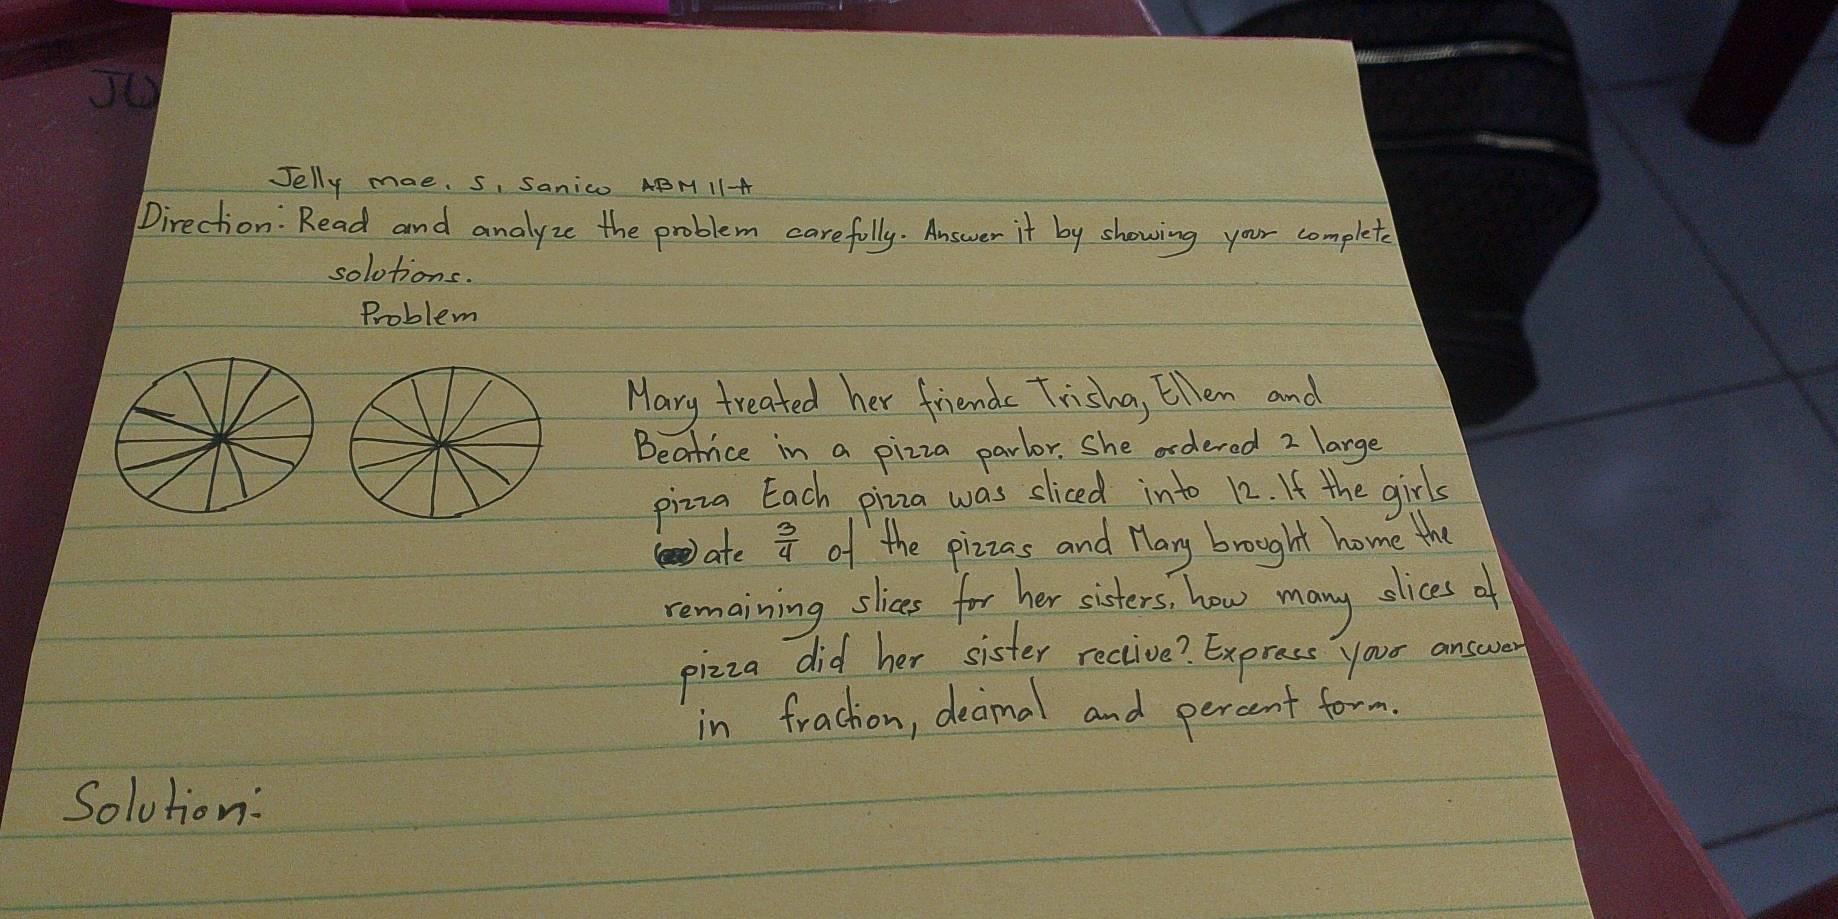 JW
Jelly mae. S. Sanico ABM 11-A
Direction: Read and analyze the problem carefully. Answer it by showing your complete
solutions.
Problem
Mary treated her friends Trisha, Ellen and
Beatrice in a pizza parlor. She ordered 2 large
pizza Each pizza was sliced into 12. If the girls
ate 3/4 of the pizzas and Mary brought home the
remaining slices for her sisters, how many slices of
pizza did her sister reciive? Express your answer
in fraction, decimal and percent form.
Solution: